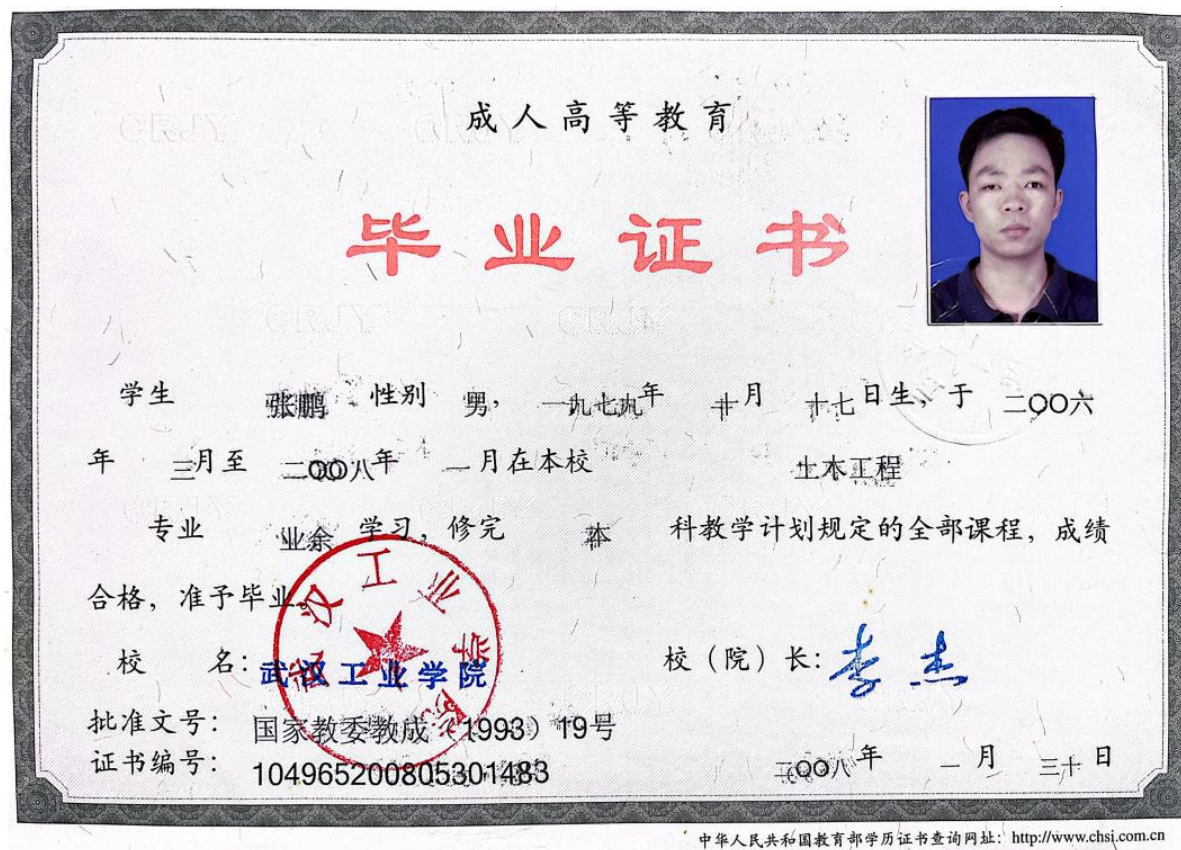 成人高等教育
毕业证书
学生 张鹏 性别 男, 一九七九年 十月 十七日生, 于 二〇〇六
年 三月至 二〇〇八年 一月在本校 土木工程
专业 业余 学习, 修完 本 科教学计划规定的全部课程, 成绩
合格, 准予毕业。
武汉工业学院
校 名: 武汉工业学院 校(院)长: 李杰
批准文号: 国家教委教成(1993)19号
证书编号: 104965200805301483 二〇〇八年 一月 三十日
中华人民共和国教育部学历证书查询网址: http://www.chsi.com.cn